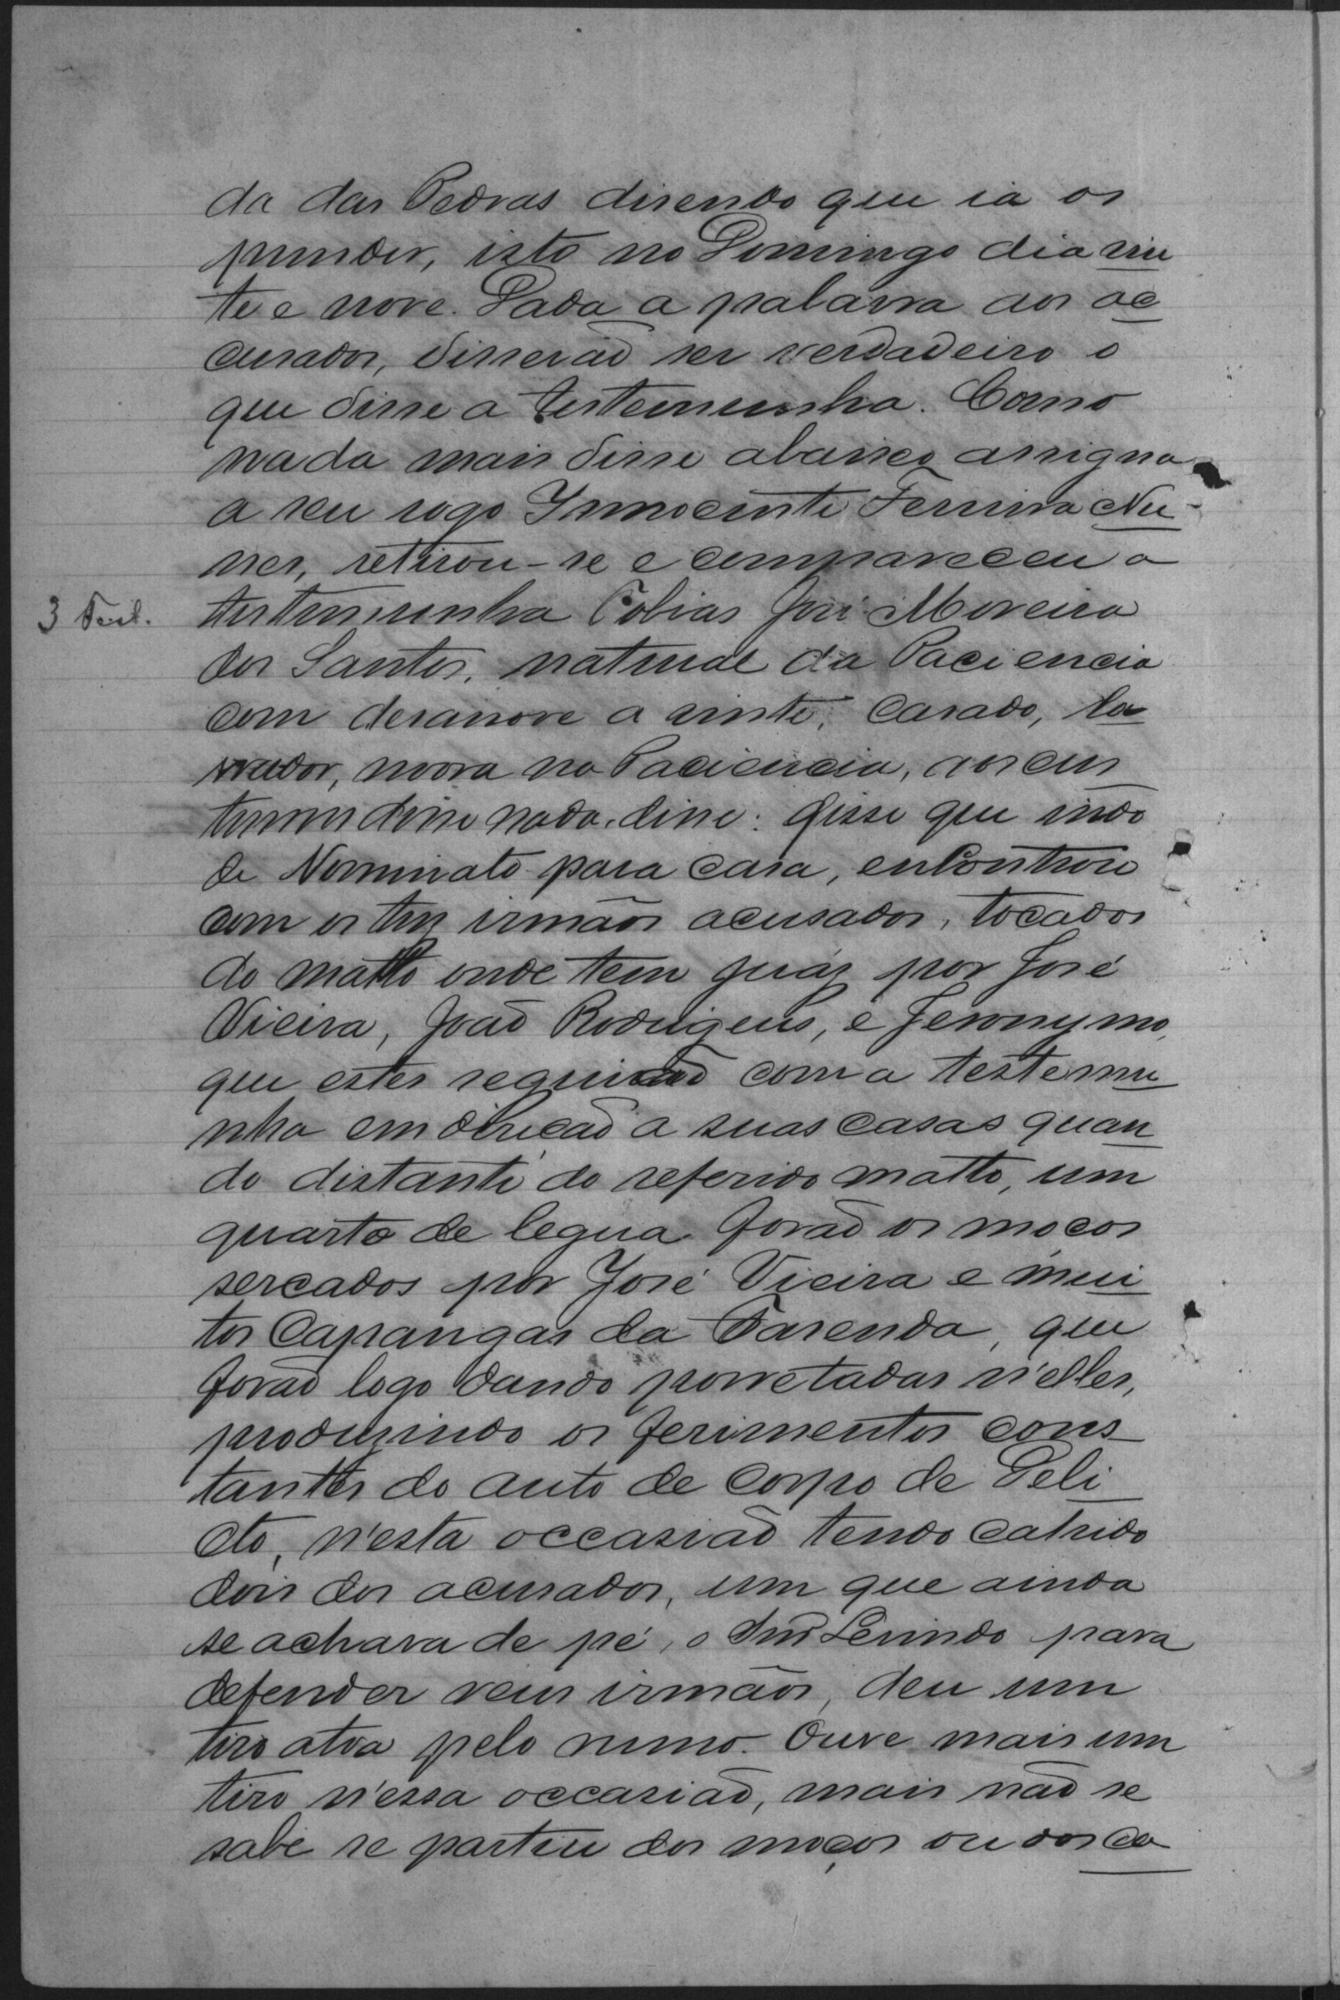 da das Pedras disendo que ia os
prender, isto no Domingo dia vin
te e nove. Dada a palavra aos ac
cusados, disserão ser verdadeiro o
que disse a testemunha. Como
nada mais disse abaixo assigna
a seu rogo Innocente Ferreira Nu-
nes, retirou-se e compareceu a
3 Test.
testemunha Tobias José Moreira
dos Santos, natural da Paciencia
com desanove a vinte, casado, la
vrador, mora na Paciencia, aos cus
tumes disse nada, disse: Disse que indo
de Nominato para casa, encontrou
com os tres irmãos acusados, tocados
do matto onde tem juáz por José
Vieira, João Rodrigues, e Jeronymo,
que estes seguirão com a testemu
nha em direcão a suas casas quan
do distante do referido matto, um
quarto de legua forão os mocos
sercados por José Vieira e mui
tos Capangas da Fasenda, que
forão logo dando porretadas n'elles,
produzindo os ferimentos cons
tantes do auto de corpo de Deli
cto, n'esta occasião tendo cahido
dois dos acusados, um que ainda
se achava de pé, o Lerindo para
defender seus irmãos, deu um
tiro atoa pelo rumo. Ouve mais um
tiro n'essa occasião, mais não se
sabe se partiu dos moços ou dos ca